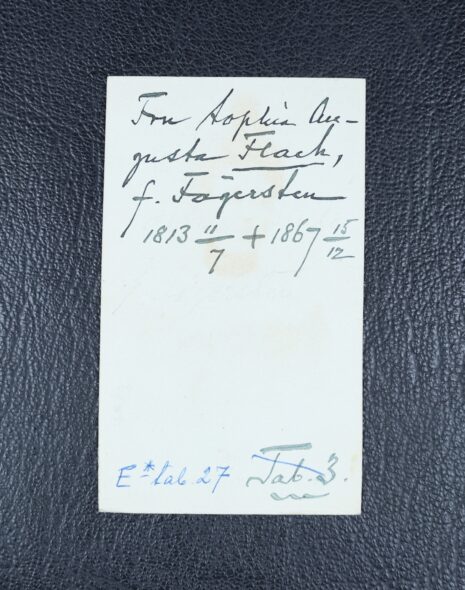 Fru Sophia Au-
gusta Flach,
f. Fägersten
1813 11/7 + 1867 15/12
E* tab 27 Tab. 3.